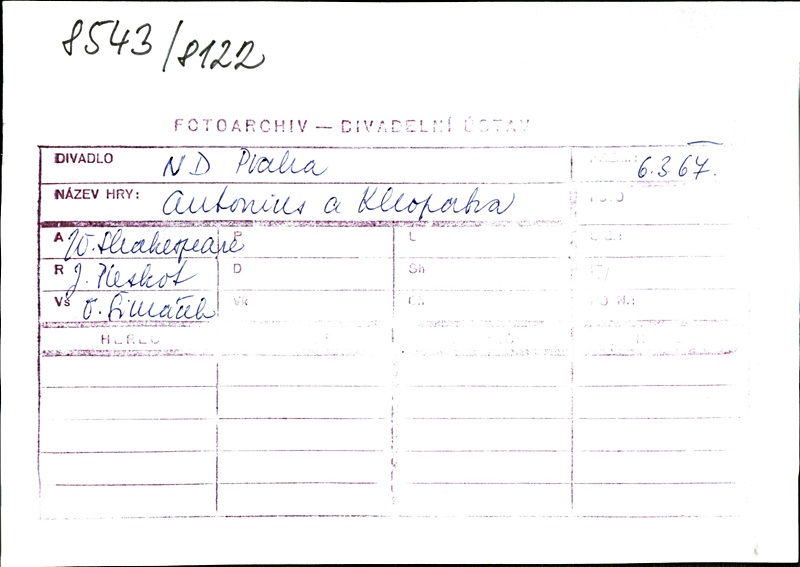 8543/8122
FOTOARCHIV — DIVADELNÍ ÚSTAV
DIVADLO ND Praha 6.3.67.
NÁZEV HRY: Antonius a Kleopatra
A W. Shakespeare P L
R J. Pleskot D Sh
Vš O. Šimáček Vk Ch
HEREC